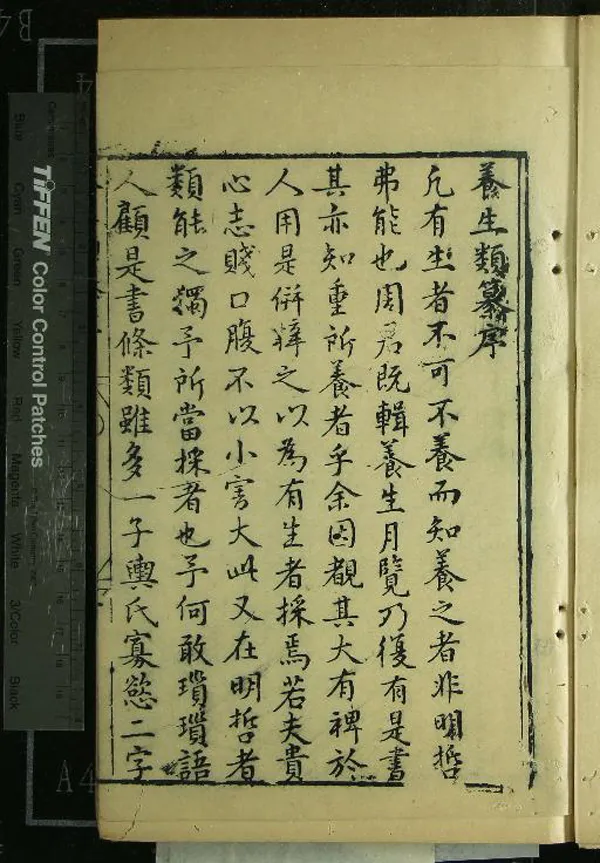 養生類纂序
凡有生者不可不養而知養之者非明哲
弗能也周君既輯養生月覽乃復有是書
其亦知重所養者乎余因覩其大有裨於
人用是併梓之以為有生者採焉若夫貴
心志賤口腹不以小害大此又在明哲者
類能之獨予所當採者也予何敢瑣瑣語
人顧是書條類雖多一子輿氏寡慾二字
TIFFEN Color Control Patches
Blue Cyan Green Yellow Red Magenta White 3/Color Black
B4
A4